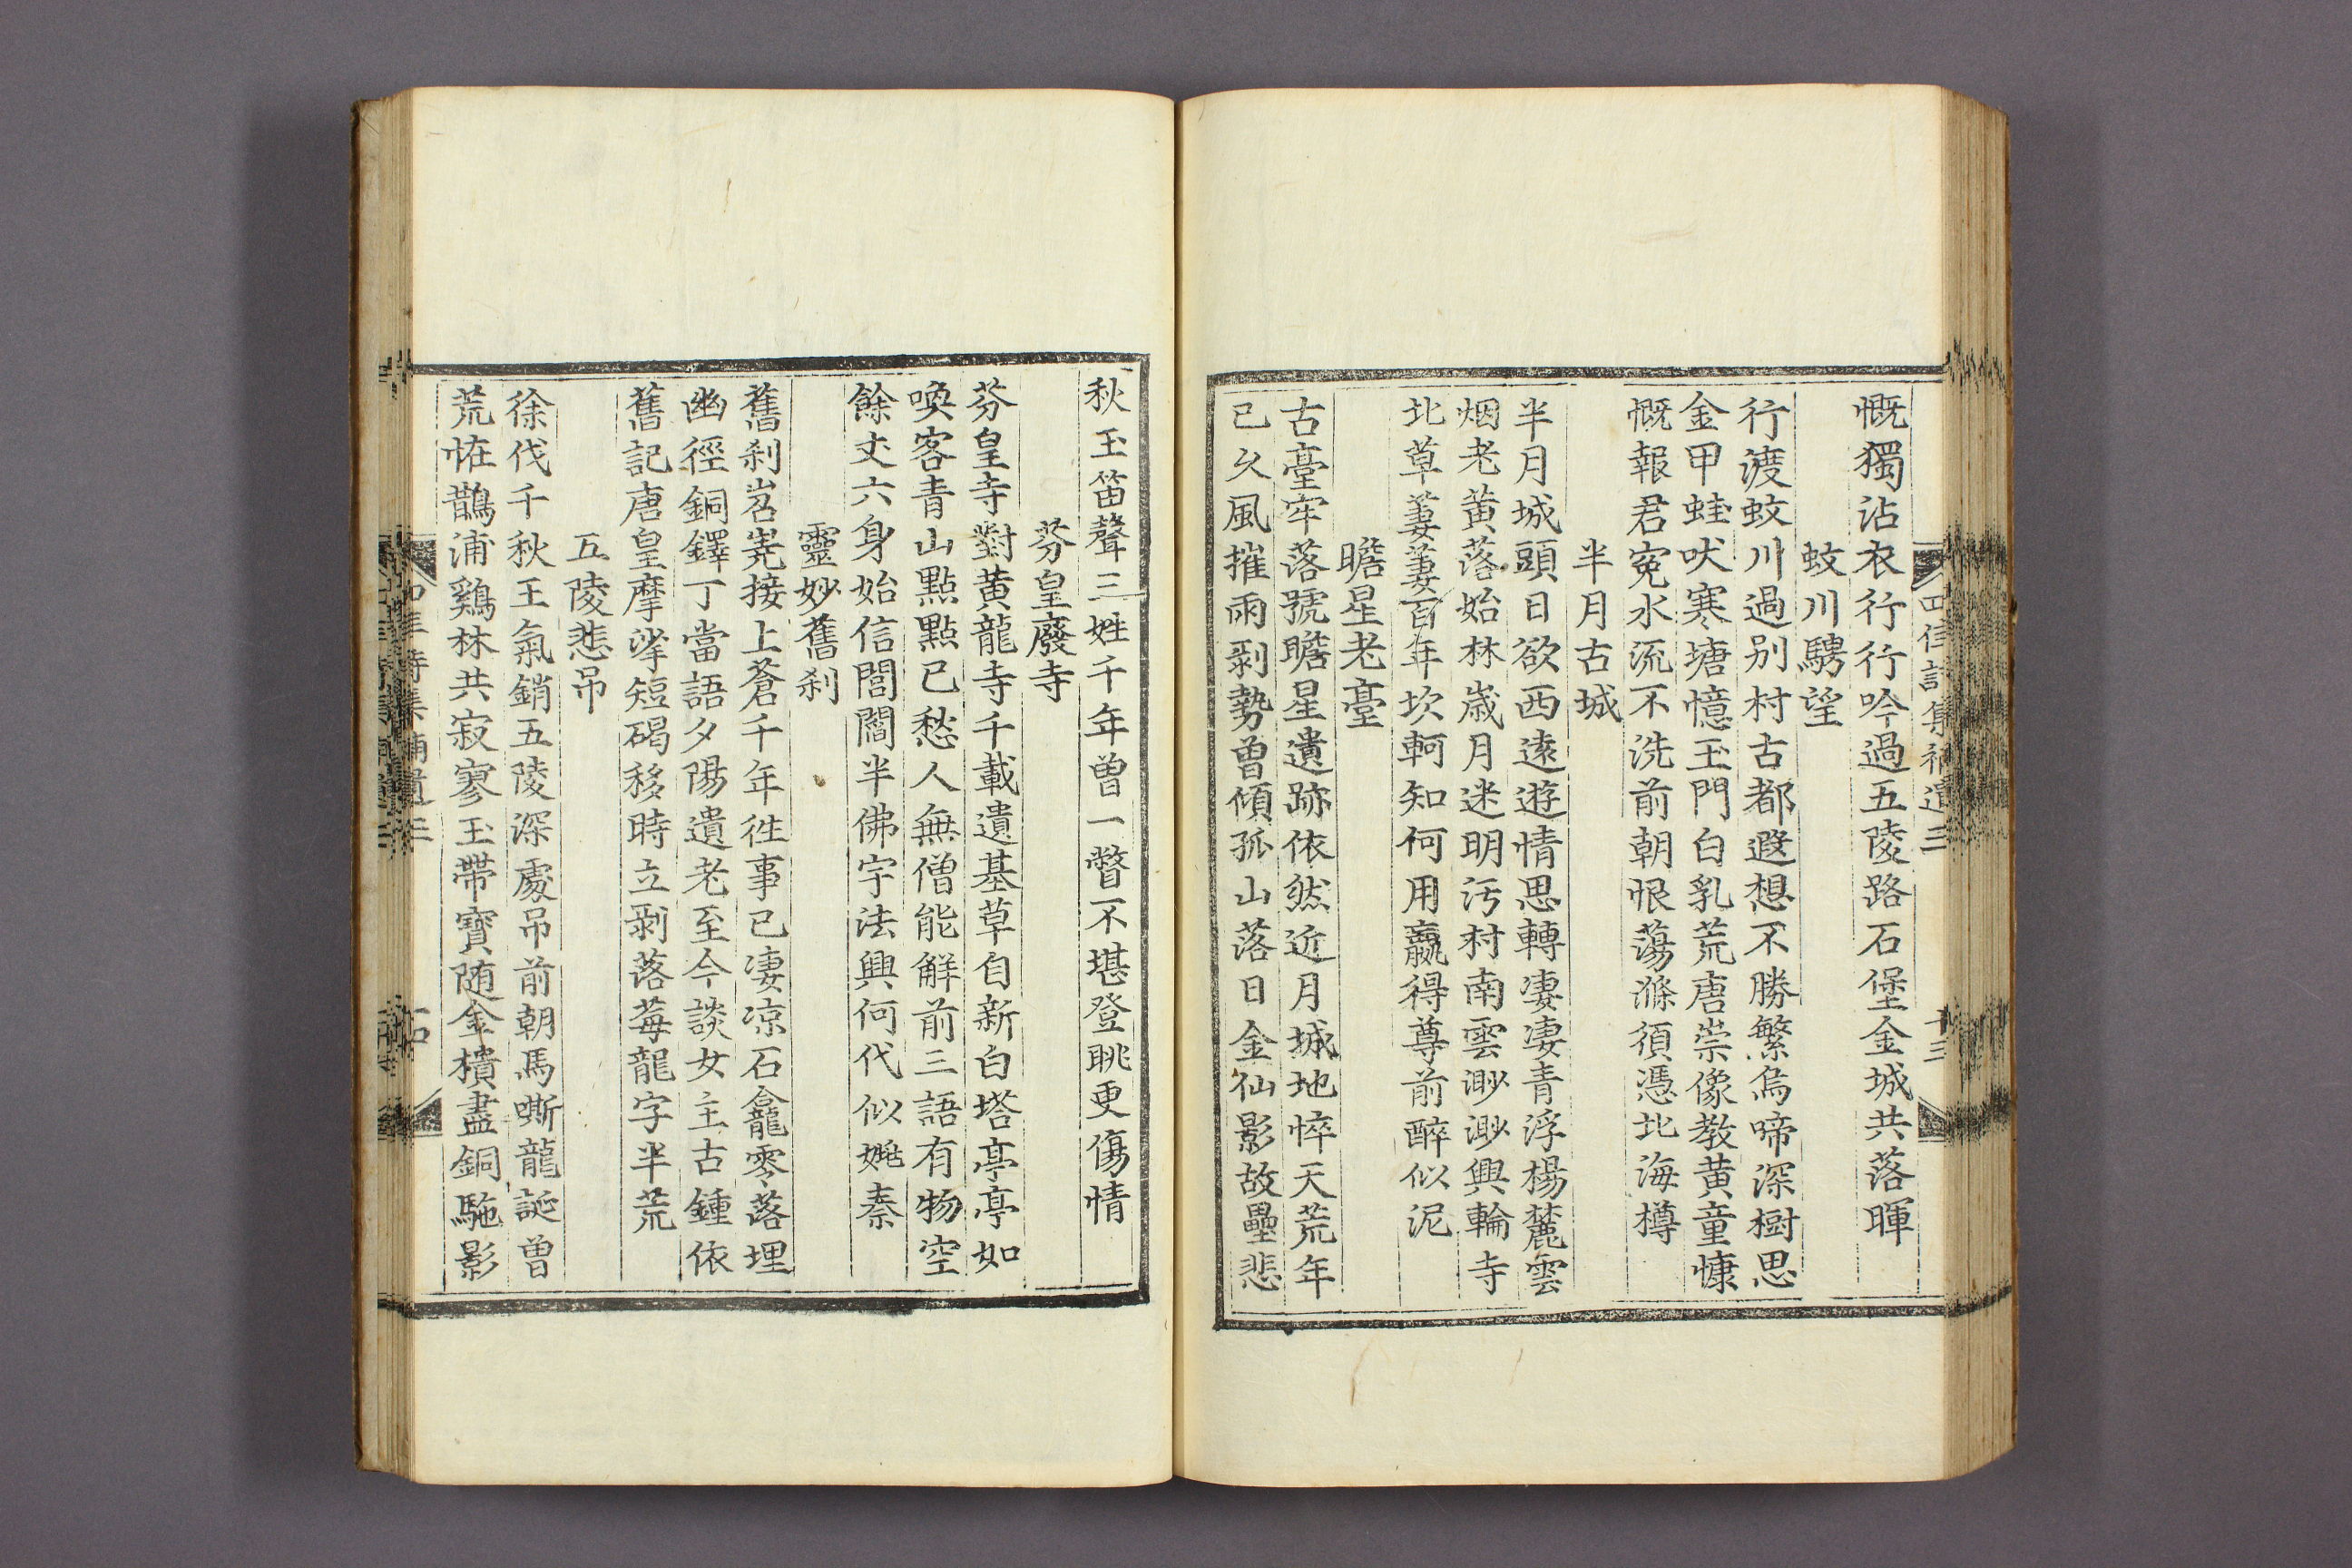 慨獨沾衣行行吟過五陵路石堡金城共落暉
蚊川騁望
行渡蚊川過別村古都遐想不勝繁烏啼深樹思
金甲蛙吠寒塘憶玉門白乳荒唐崇像教黃童慷
慨報君冤水流不洗前朝恨蕩滌須憑北海樽
半月古城
半月城頭日欲西遠遊情思轉凄凄青浮楊麓雲
烟老黃落始林歲月迷明汚村南雲渺渺興輪寺
北草萋萋百年坎軻知何用贏得尊前醉似泥
瞻星老臺
古臺牢落號瞻星遺跡依然近月城地悴天荒年
已久風摧雨剥勢曾傾孤山落日金仙影故壘悲
秋玉笛聲三姓千年曾一瞥不堪登眺更傷情
芬皇廢寺
芬皇寺對黃龍寺千載遺基草自新白塔亭亭如
喚客青山點點已愁人無僧能解前三語有物空
餘丈六身始信閭閻半佛宇法興何代似姚秦
靈妙舊刹
舊刹岧嶤接上蒼千年徃事已凄凉石龕零落埋
幽徑銅鐸丁當語夕陽遺老至今談女主古鍾依
舊記唐皇摩挲短碣移時立剥落莓龍字半荒
五陵悲吊
徐伐千秋王氣銷五陵深處吊前朝馬嘶龍誕曾
荒恠鵲浦鷄林共寂寥玉帶寶随金櫝盡銅駞影